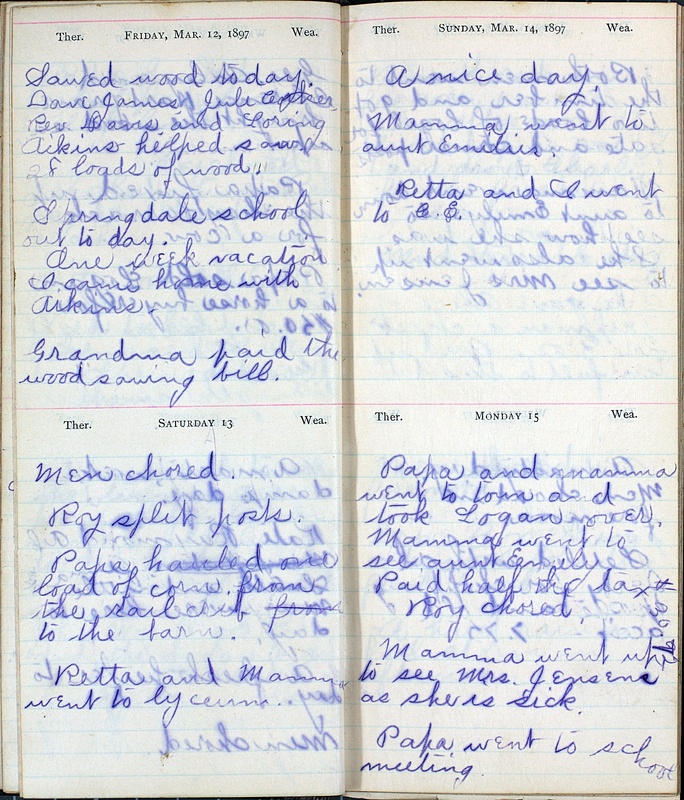 Ther. FRIDAY, MAR. 12, 1897 Wea.
Sawed wood today.
Dave James, Jule
Rev. Davis and Loring
Aikins helped sawed
28 loads of wood.
Springdale school
out to day.
One week vacation
I came home with
Aikins.
Grandma paid the
wood sawing bill.
Ther. SATURDAY 13 Wea.
Men chored.
Roy split posts.
Papa hauled one
load of corn from
the rail crib from
to the barn.
Retta and Mamma
went to lyceum.
Ther. SUNDAY, MAR. 14, 1897 Wea.
A nice day.
Mamma went to
aunt Emilies.
Retta and I went
to C. E.
Ther. MONDAY 15 Wea.
Papa and mamma
went to town and
took Logan over.
Mamma went to
see aunt Emily
Paid half the tax
Roy chored.
Mamma went up
to see Mrs. Jensens
as she is sick.
Papa went to school
meeting.